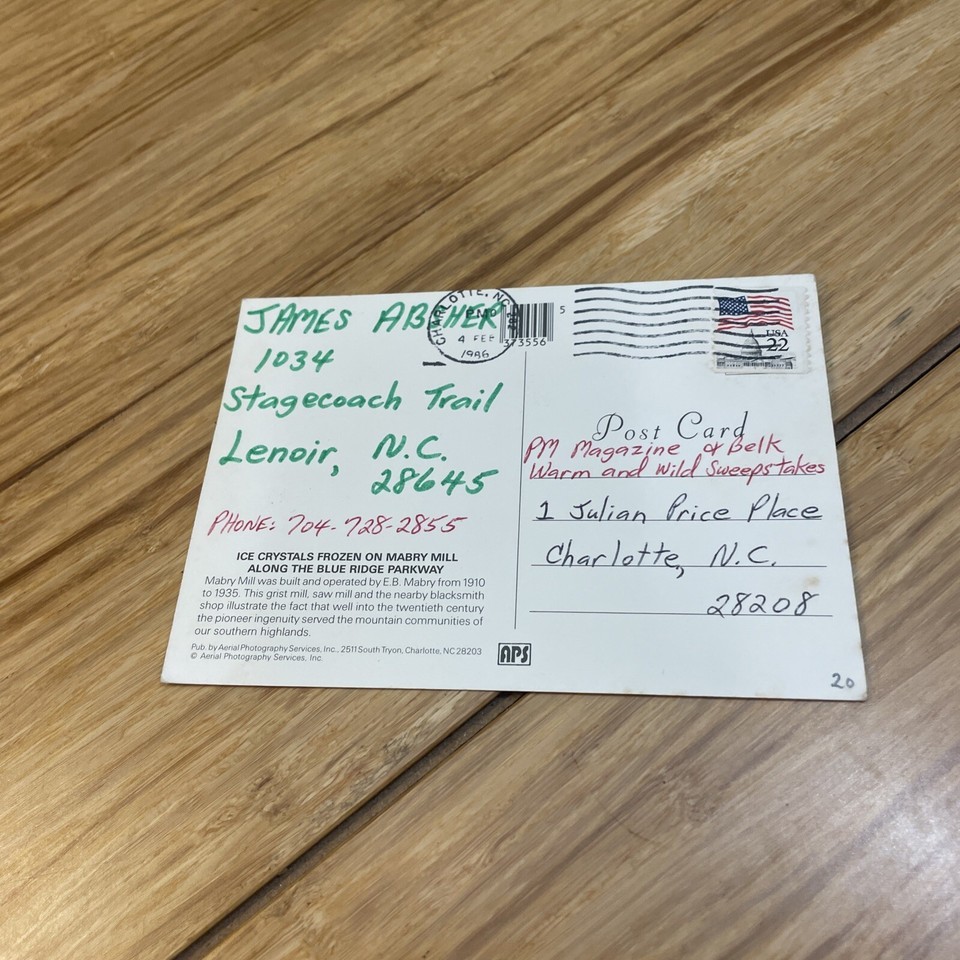 JAMES
1034
Stagecoach Trail
Lenoir, N.C.
28645
PHONE: 704-728-2855
ICE CRYSTALS FROZEN ON MABRY MILL
ALONG THE BLUE RIDGE PARKWAY
Mabry Mill was built and operated by E.B. Mabry from 1910
to 1935. This grist mill, saw mill and the nearby blacksmith
shop illustrate the fact that well into the twentieth century
the pioneer ingenuity served the mountain communities of
our southern highlands.
Pub. by Aerial Photography Services, Inc., 2511 South Tryon, Charlotte, NC 28203
© Aerial Photography Services, Inc.
APS
CHARLOTTE, NC
PM
4 FEB
1986
373556
5
USA
22
Post Card
PM Magazine & Belk
Warm and Wild Sweepstakes
1 Julian Price Place
Charlotte, N.C.
28208
20